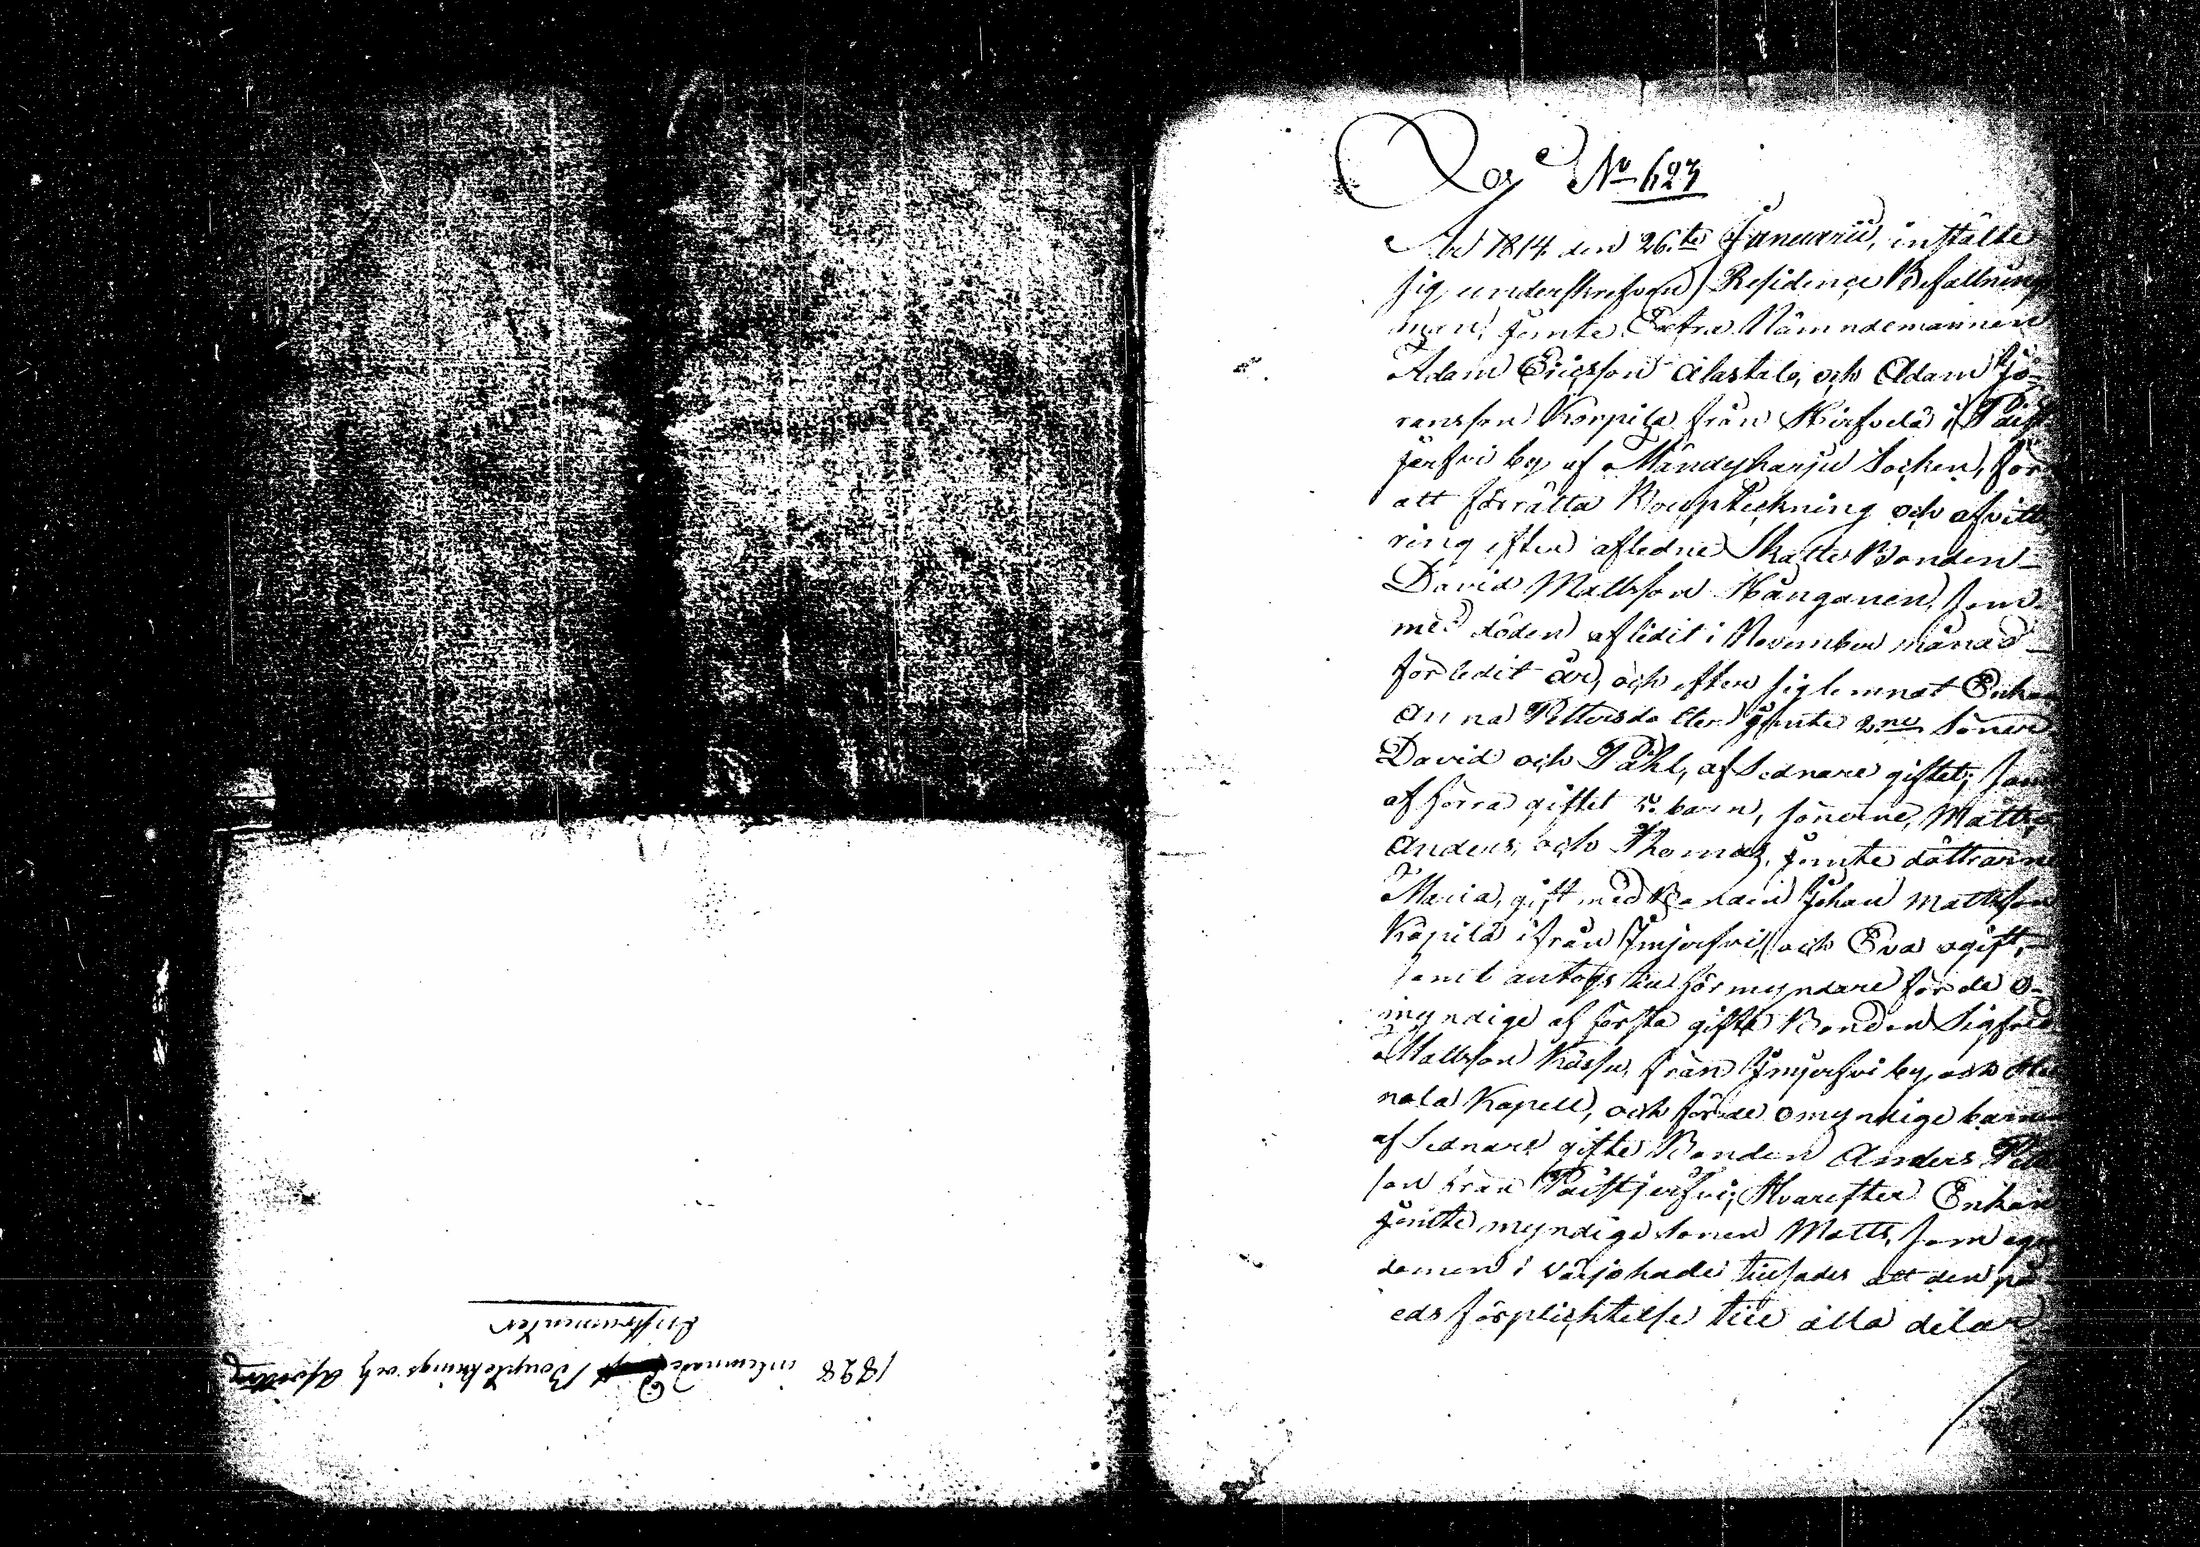 1828 inlemnade Bouptecknings och Afvittrings
Instrumenter
No 623
År 1814 den 26te Januarii, instälte
sig underskrefven Residence Befallnings
man, jemte Extra Nämndemännen
Adam Ericsson Alastalo, och Adam Jö-
ransson Korpila från Hirfvelä i Paist
jerfvi by af Mändyharju Socken, för
att förrätta Bouptekning och afvitt
ring efter aflidne Skatte Bonden
David Mattsson Hånganen, som
med döden aflidit i November månad
förledit år, och efter sig lemnat Enkan
Anna Pettersdotter jemte 2ne Söner
David och Påhl, af Sednare giftet; samt
af förra giftet 5. barn, sönerne, Matts,
Anders, och Thomas, jemte döttrarne
Maria, gift med Bonden Johan Mattsson
Kopila ifrån Imjerfvi, och Eva ogift,
samt antogs till förmyndare för de o-
myndige af första gifte Bonden Sigfred
Mattsson Kåssu, från Imjerfvi by och Hei
nola Kapell, och för de omyndige barnen
af Sednare gifte Bonden Anders Pett
son från Paistjerfvi; Hvarefter Enkan
jemte myndige sonen Matts, som egen
domen i värjo hade tillsades att den på
eds förplichtelse till alla delar